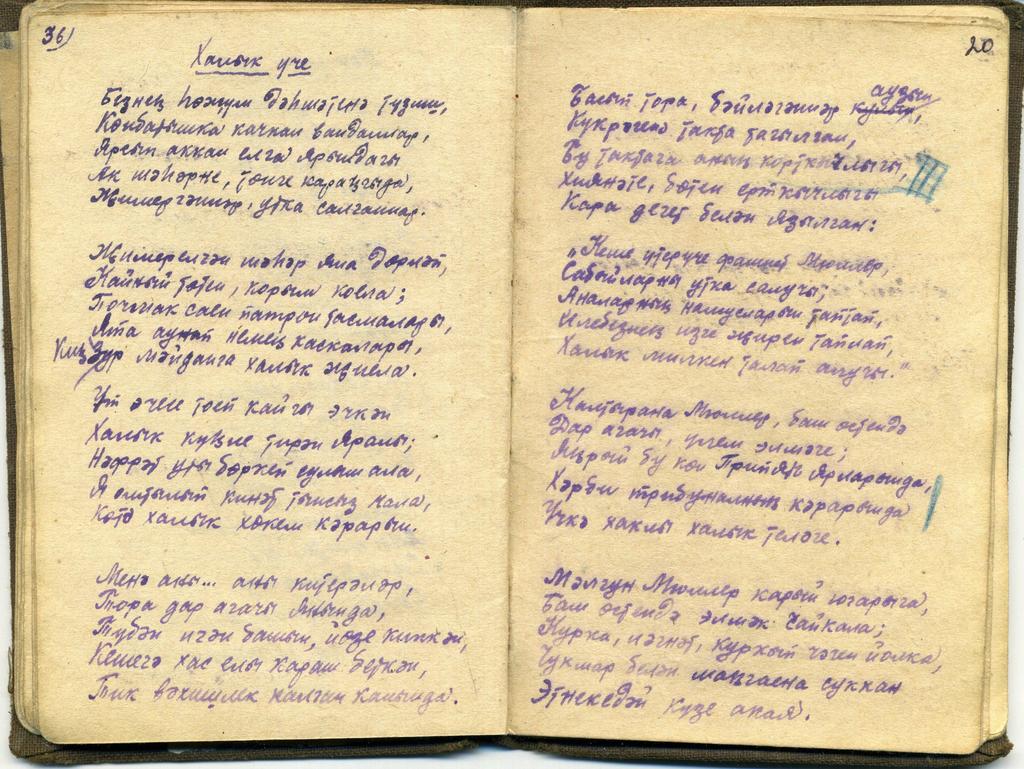 36)
Халык үче
Безнең һөҗүм дәһшәтенә түзми,
Көнбатышка качкан вандаллар,
Ярсып аккан елга ярындагы
Ак шәһәрне, төнге караңгыда,
Җимергәннәр, утка салганнар.
Җимерелгән шәһәр яна дөрләп,
Кайный төтен, корым коела;
Почмак саен патрон тасмалары,
Ята аунап немец каскалары,
Киң мәйданга халык җыела.
Ут эчеп төсле кайгы эчкән
Халык күңле тирән яралы;
Нәфрәт уты бөркеп сулыш ала,
Я омтылып кинәт тынсыз кала,
Көтә халык хөкем карарын.
Менә аны... аны китерәләр,
Тора дар агачы янында,
Түбән игән башын, йөзе киккән,
Кешегә хас елы караш беткән,
Тик вәхшилек калган канында.
20
Басып тора, бәйләгәннәр аузын,
Күкрәгенә такта тагылган,
Бу тактага аның корткычлыгы,
Хиянәте, бөтен ерткычлыгы
Кара дегет белән язылган:
„Кеше үтерүче фашист Мюллер,
Сабыйларны утка салучы;
Аналарның намусларын таптап,
Илебезнең изге җирен таплап,
Халык милкен талап алучы."
Калтырана Мюллер, баш өстендә
Дар агачы, үлем элмәге;
Яңрый бу көн Припять ярларында,
Хәрби трибунал карарында
Үчкә хаклы халык теләге.
Мәлгун Мюллер карый югарыга,
Баш өстендә элмәк чайкала;
Курка, ләгнәт, куркып чәчен йолка,
Чукмар белән маңгаена суккан
Этнекедәй күзе аная.